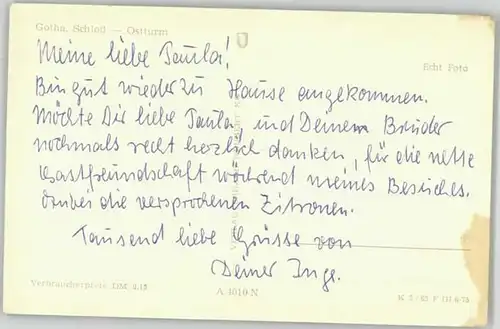 Gotha, Schloß — Ostturm
Echt Foto
Meine liebe Paula!
Bin gut wieder zu Hause angekommen.
Möchte Dir liebe Paula, und Deinem Bruder
nochmals recht herzlich danken, für die nette
Gastfreundschaft während meines Besuches.
Anbei die versprochenen Zitronen.
Tausend liebe Grüsse von
Deiner Inge.
Verbraucherpreis DM 0,15
A 4010 N